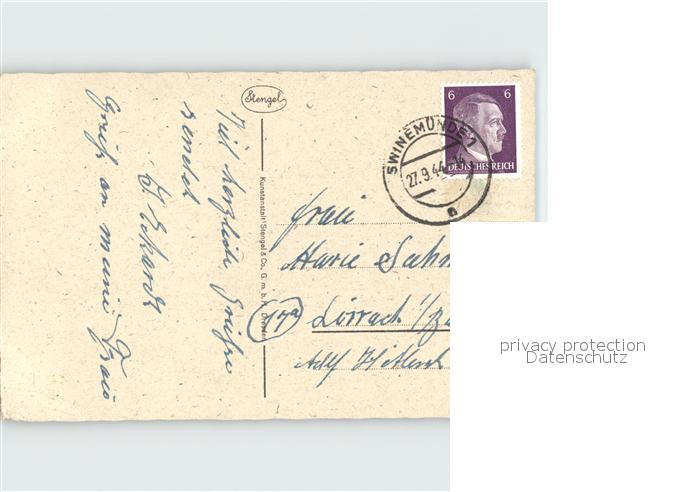 Stengel
Viel herzliche Grüße
sendet
J. Eckardt
Gruß an meine Frau
Kunstanstalt Stengel & Co., G. m. b. H., Dresden
6 6
DEUTSCHES REICH
SWINEMÜNDE 1
27.9.44
a
Frau
Marie
(17a) Lörrach i/Ba
Adolf Hitlerstr
privacy protection
Datenschutz